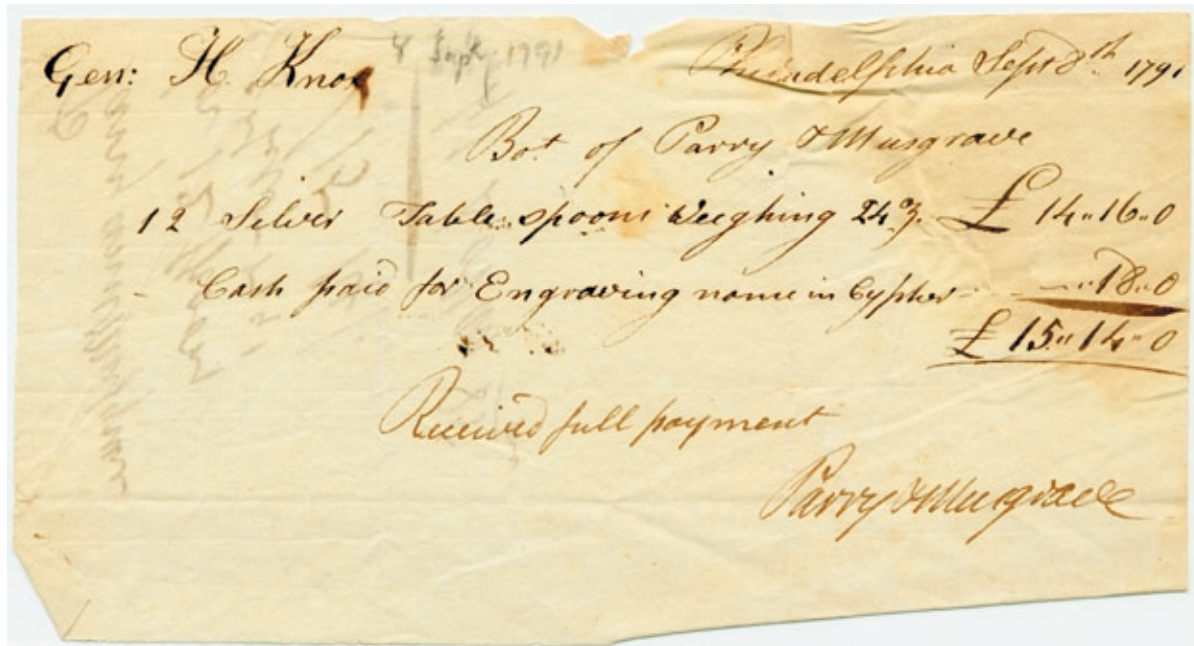 Gen: H. Knox
8 Sept 1791
Philadelphia Sept 8th 1791
Bot. of Parry & Musgrave
12 Silver Table spoons Weeghing 24 oz. £ 14..16..0
- Cash paid for Engraving name in Cypher - — ..18..0
£ 15..14..0
Received full payment
Parry & Musgrave